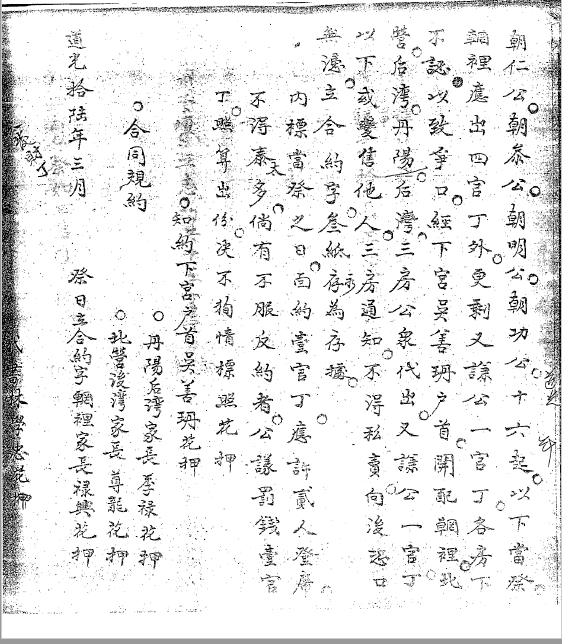 朝仁公朝叅公朝明公朝功公十六起以下當祭
輞裡應出四官丁外更剩又謙公一官丁各房下
不認以致爭口經下宮吳善珃户首開配輞裡北
營后灣丹陽后灣三房公衆代出又謙公一官丁
以下或變售他人三房通知不得私賣向後恐口
無憑立合約字叁紙存為存據
內標當祭之日面約壹官丁應許貳人登席
不得太多倘有不服反約者公議罰錢壹官
丁照算出份决不狥情標照花押
知約下宮户首吳善珃花押
合同規約
丹陽后灣家長季祿花押
北營後灣家長尊龍花押
道光拾陸年三月
祭日立合約字輞裡家長祿興花押
花押